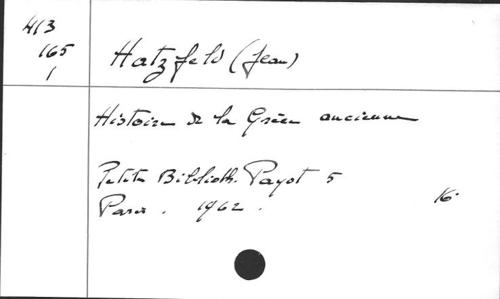 413
165
1
Hatzfeld (Jean)
Histoire de la Grèce ancienne
Petite Biblioth. Payot 5
Paris. 1962.
16°